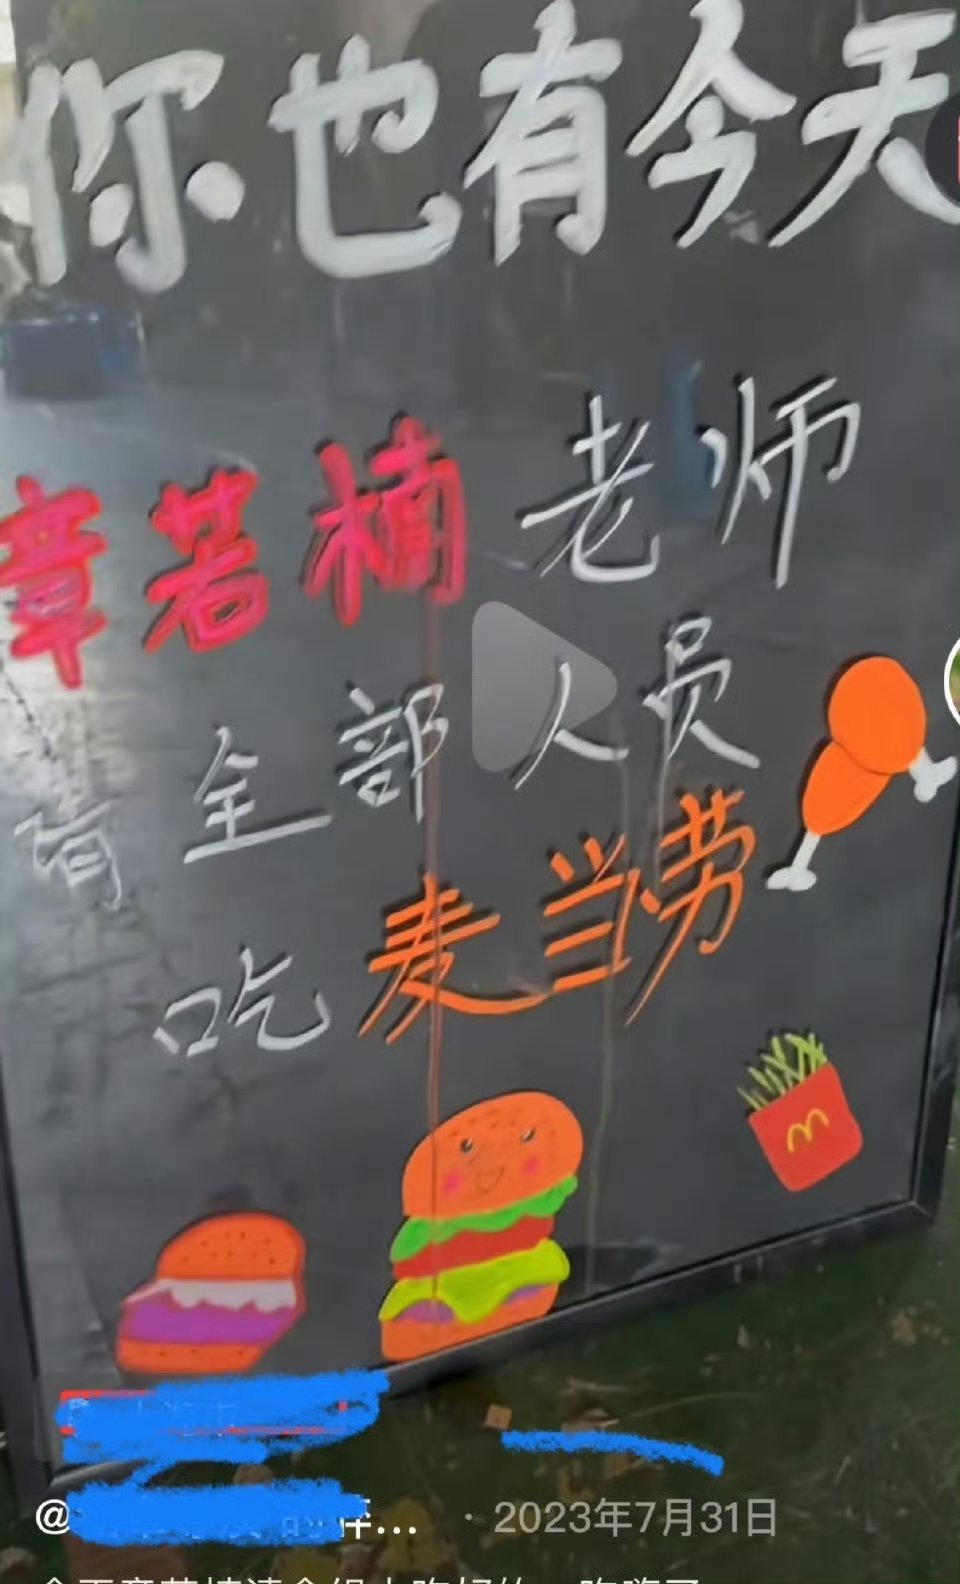 你也有今天
章若楠老师
请全部人员
吃麦当劳
@
· 2023年7月31日